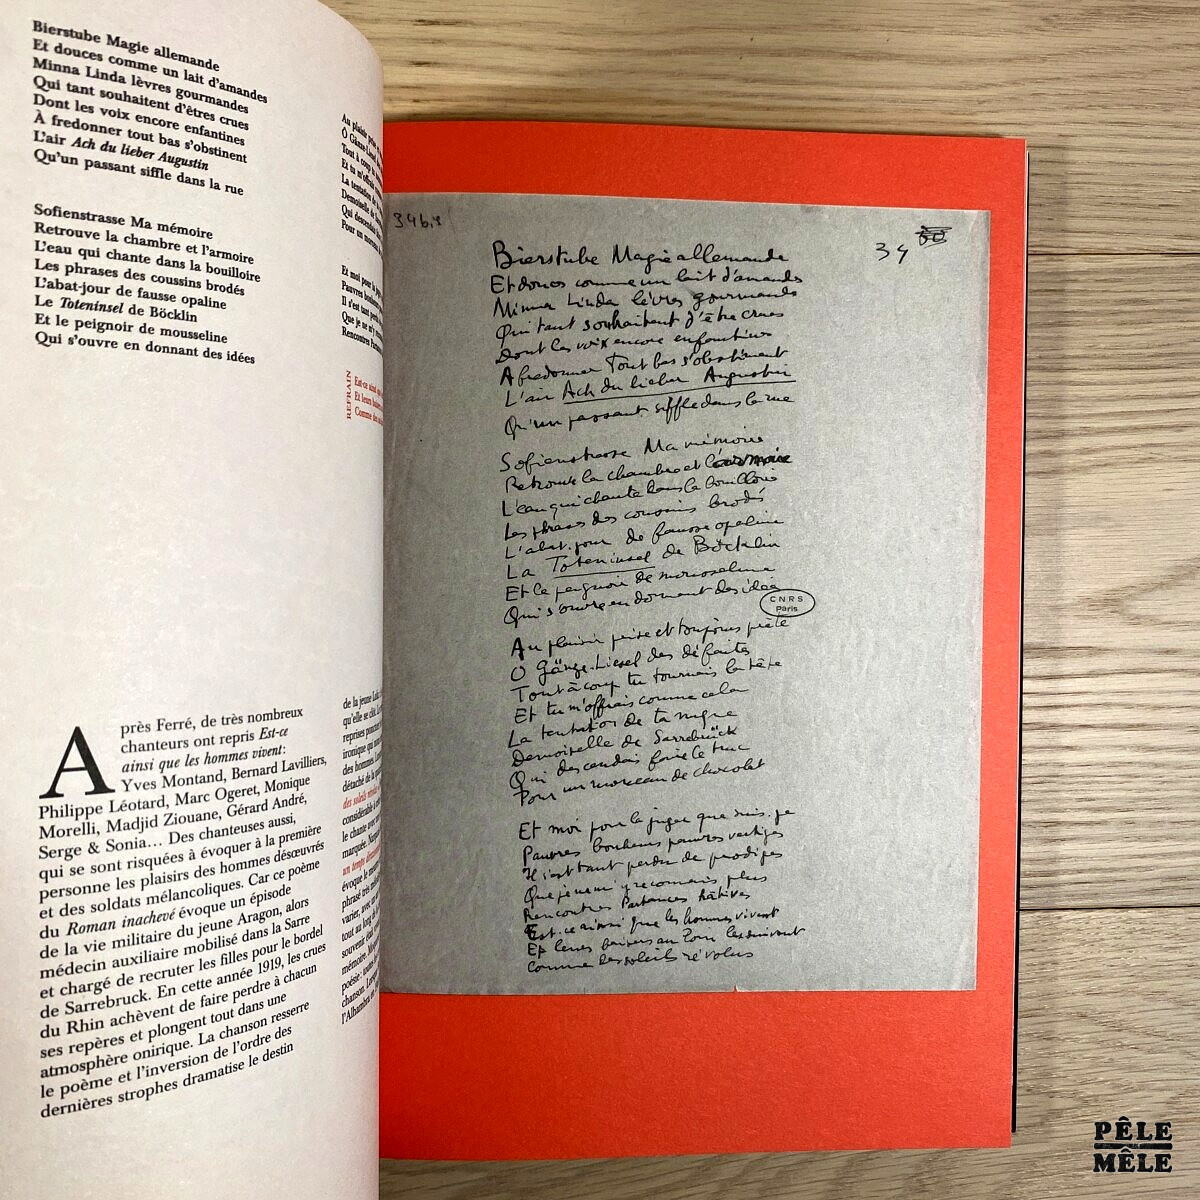 Bierstube Magie allemande
Et douces comme un lait d'amandes
Minna Linda lèvres gourmandes
Qui tant souhaitent d'êtres crues
Dont les voix encore enfantines
À fredonner tout bas s'obstinent
L'air Ach du lieber Augustin
Qu'un passant siffle dans la rue
Sofienstrasse Ma mémoire
Retrouve la chambre et l'armoire
L'eau qui chante dans la bouilloire
Les phrases des coussins brodés
L'abat-jour de fausse opaline
Le Toteninsel de Böcklin
Et le peignoir de mousseline
Qui s'ouvre en donnant des idées
Après Ferré, de très nombreux
chanteurs ont repris Est-ce
ainsi que les hommes vivent :
Yves Montand, Bernard Lavilliers,
Philippe Léotard, Marc Ogeret, Monique
Morelli, Madjid Ziouane, Gérard André,
Serge & Sonia… Des chanteuses aussi,
qui se sont risquées à évoquer à la première
personne les plaisirs des hommes désœuvrés
et des soldats mélancoliques. Car ce poème
du Roman inachevé évoque un épisode
de la vie militaire du jeune Aragon, alors
médecin auxiliaire mobilisé dans la Sarre
et chargé de recruter les filles pour le bordel
de Sarrebruck. En cette année 1919, les crues
du Rhin achèvent de faire perdre à chacun
ses repères et plongent tout dans une
atmosphère onirique. La chanson resserre
le poème et l'inversion de l'ordre des
dernières strophes dramatise le destin
Au plaisir
Ô Gänze-Liesel
Tout à coup
Et tu m'offrais
La tentation de
Demoiselle de
Qui descendais
Pour un morceau
Et moi pour la
Pauvres bonheurs
Il s'est tant
Que je ne m'y
Rencontres
REFRAIN
Est-ce ainsi
Et leurs baisers
Comme des
de la jeune
qu'elle se
reprises
ironique qui
des hommes.
détaché de la
des soleils
considérable à
le chante avec
marquée.
un temps
évoque le
phrasé très
varier, avec
tout au long
souvenir
mémoire.
poésie :
chanson.
l'Alhambra
34 bis
34
Bierstube Magie allemande
Et douces comme un lait d'amandes
Minna Linda lèvres gourmandes
Qui tant souhaitent d'être crues
Dont les voix encore enfantines
A fredonner Tout bas s'obstinent
L'air Ach du lieber Augustin
Qu'un passant siffle dans la rue
Sofienstrasse Ma mémoire
Retrouve la chambre et l'armoire
L'eau qui chante dans la bouilloire
Les phrases des coussins brodés
L'abat-jour de fausse opaline
La Toteninsel de Böcklin
Et le peignoir de mousseline
Qui s'ouvre en donnant des idées
CNRS
Paris
Au plaisir prise et toujours prête
O Gänze-Liesel des défaites
Tout à coup tu tournais la tête
Et tu m'offrais comme cela
La tentation de ta nuque
Demoiselle de Sarrebrück
Qui descendais faire le truc
Pour un morceau de chocolat
Et moi pour la juger que suis-je
Pauvres bonheurs pauvres vertiges
Il s'est tant perdu de prodiges
Que je ne m'y reconnais plus
Rencontres Partances hâtives
Est-ce ainsi que les hommes vivent
Et leurs baisers au loin les suivent
Comme des soleils révolus
PÊLE
MÊLE